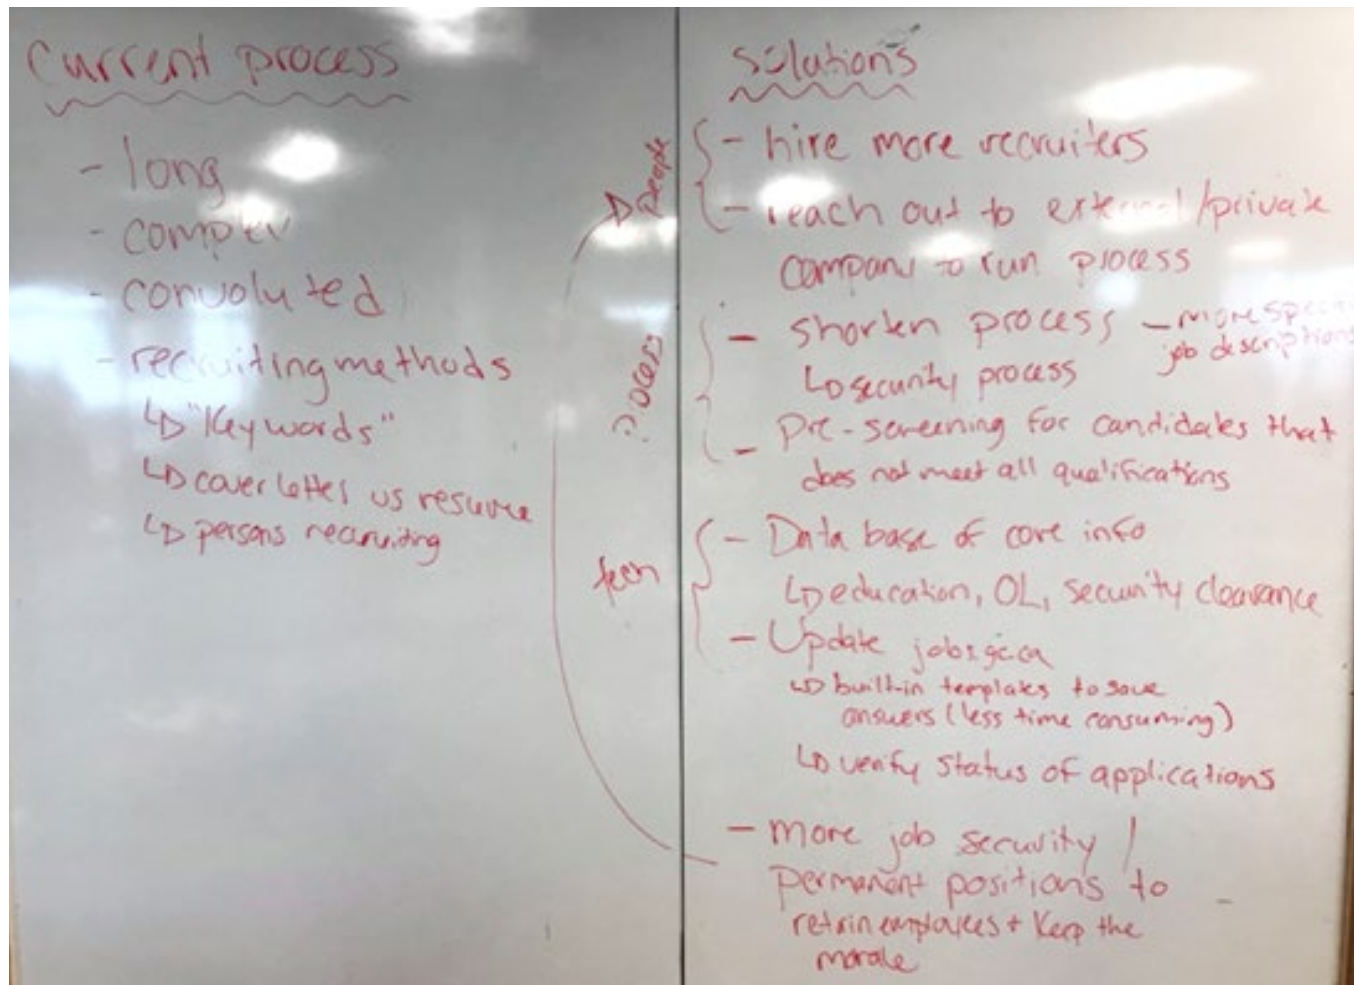 Current process
- long
- complex
- convoluted
- recruiting methods
↳ "Keywords"
↳ cover letter vs resume
↳ persons recruiting
Solutions
people
- hire more recruiters
- reach out to external/private
company to run process
process
- shorten process - more specific
job descriptions
↳ security process
- Pre-screening for candidates that
does not meet all qualifications
tech
- Data base of core info
↳ education, OL, security clearance
- Update jobs.gc.ca
↳ built-in templates to save
answers (less time consuming)
↳ verify status of applications
- more job security /
permanent positions to
retain employees + keep the
morale